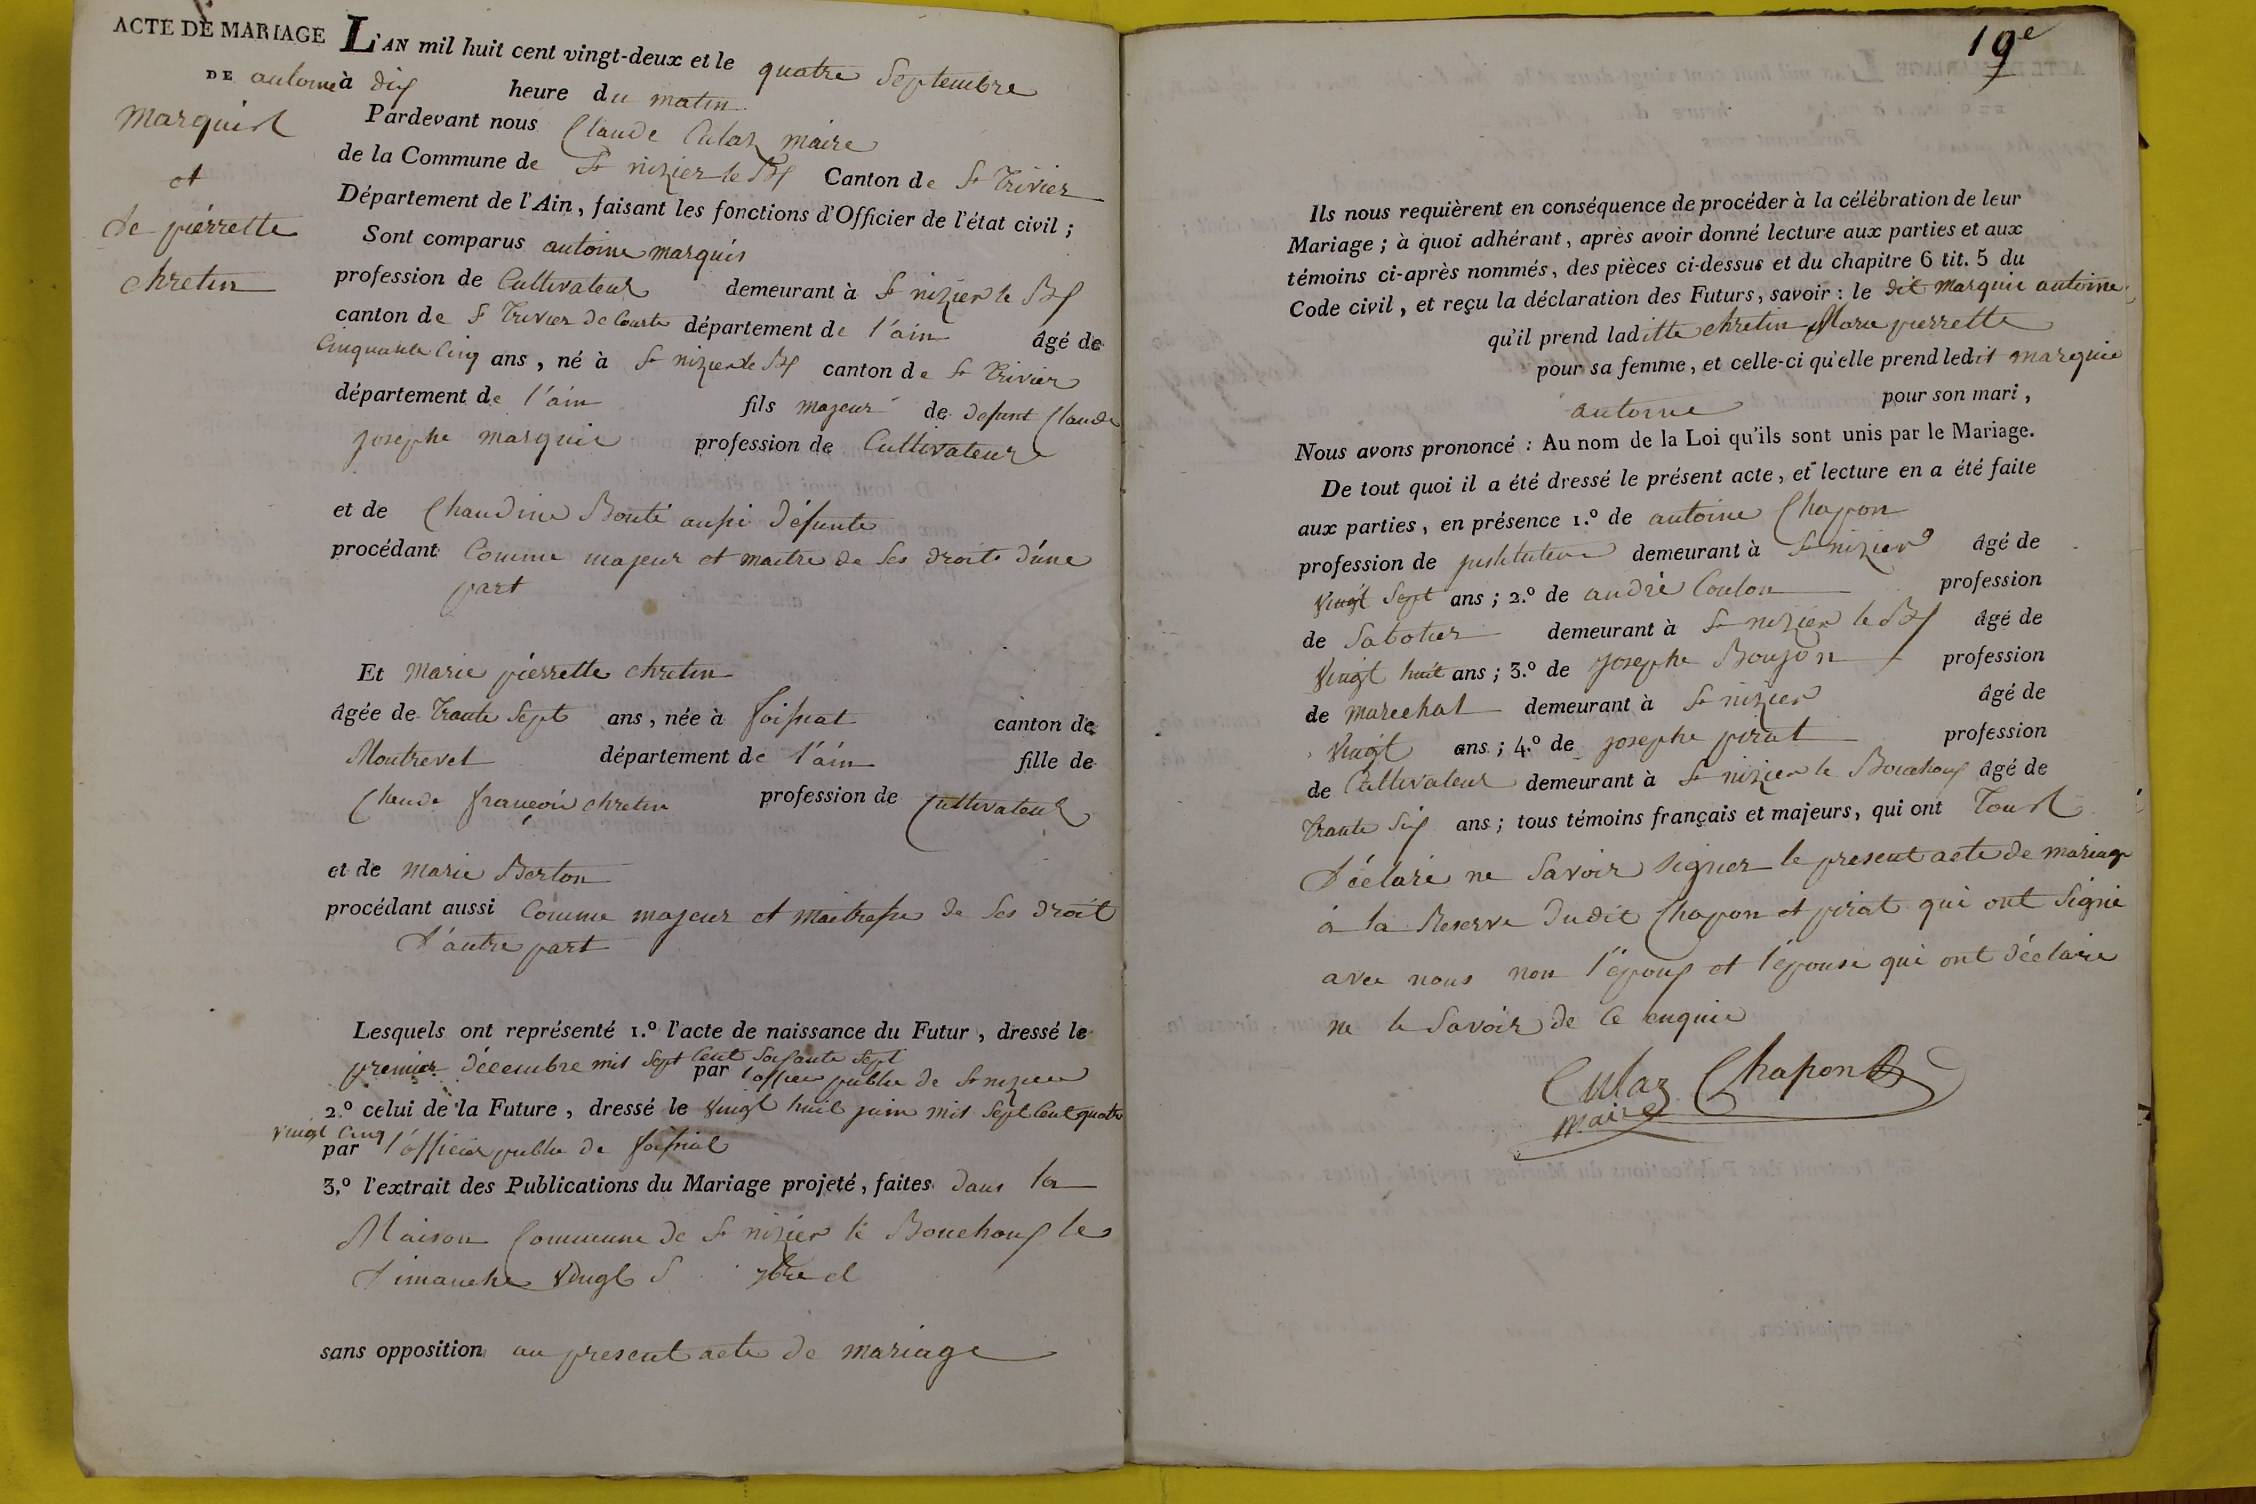 ACTE DE MARIAGE
DE antoine
Marquis
et
de piérrette
chretin
L'AN mil huit cent vingt-deux et le quatre Septembre
à dix heure du matin
Pardevant nous Claude Culaz maire
de la Commune de St nizier le Bx Canton de St Trivier
Département de l'Ain, faisant les fonctions d'Officier de l'état civil ;
Sont comparus antoine marquis
profession de Cultivateur demeurant à St nizier le Bx
canton de St Trivier de Courte département de l'ain âgé de
Cinquante Cinq ans, né à St nizier le Bx canton de St Trivier
département de l'ain fils majeur de defunt Claude
josephe marquis profession de Cultivateur
et de Claudine Bonté aussi défunte
procédant Comme majeur et maitre de Ses droits d'une
part
Et Marie piérrette chretin
âgée de Trante Sept ans, née à foissiat canton de
Montrevel département de l'ain fille de
Claude françois chretin profession de Cultivateur
et de marie Berton
procédant aussi Comme majeur et maitresse de Ses droit
d'autre part
Lesquels ont représenté 1.º l'acte de naissance du Futur, dressé le
premier décembre mil Sept Cent Soixante Sept
par l'officier public de St nizier
2.º celui de la Future, dressé le vingt huit juin mil Sept Cent quatre
vingt Cinq
par l'officier public de foissiat
3.º l'extrait des Publications du Mariage projeté, faites dans la
Maison Commune de St nizier le Bouchoux les
dimanche vingt
sans opposition au present acte de mariage
19e
Ils nous requièrent en conséquence de procéder à la célébration de leur
Mariage ; à quoi adhérant, après avoir donné lecture aux parties et aux
témoins ci-après nommés, des pièces ci-dessus et du chapitre 6 tit. 5 du
Code civil, et reçu la déclaration des Futurs, savoir : le dit marquis antoine
qu'il prend laditte chretin Marie pierrette
pour sa femme, et celle-ci qu'elle prend ledit marquis
antoine pour son mari,
Nous avons prononcé : Au nom de la Loi qu'ils sont unis par le Mariage.
De tout quoi il a été dressé le présent acte, et lecture en a été faite
aux parties, en présence 1.º de antoine Chapon
profession de jnstituteur demeurant à St nizier âgé de
vingt Sept ans ; 2.º de andré Coulon profession
de Sabotier demeurant à St nizier le Bx âgé de
vingt huit ans ; 3.º de josephe Boujon profession
de marechal demeurant à St nizier âgé de
vingt ans ; 4.º de josephe pirat profession
de Cultivateur demeurant à St nizier le Bouchoux âgé de
Trante Six ans ; tous témoins français et majeurs, qui ont Tous
déclaré ne Savoir Signer le present acte de mariage
à la Reserve dudit Chapon et pirat qui ont Signé
avec nous non l'époux et l'épouse qui ont déclaré
ne le Savoir de Ce enquis
Culaz Chapon
maire